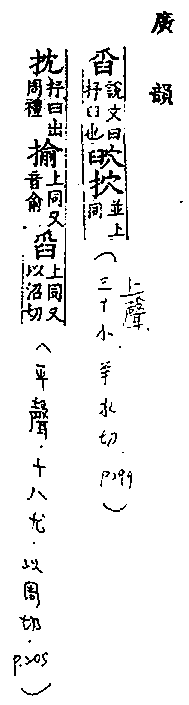 廣韻
舀說文曰抒臼也𦥝抭並上同(上聲．三十小．羊水切．p299)
抌抒臼出周禮揄上同又音俞舀上同又以沼切(平聲．十八尤．以周切．p.205)